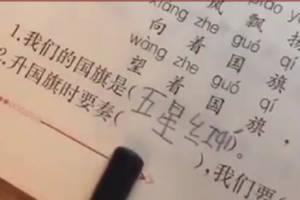 piāo
xiàng zhe guó qí
向着国旗，
wàng zhe guó qí
望着国旗，
1.我们的国旗是(五星红)。
2.升国旗时要奏(          ),我们要